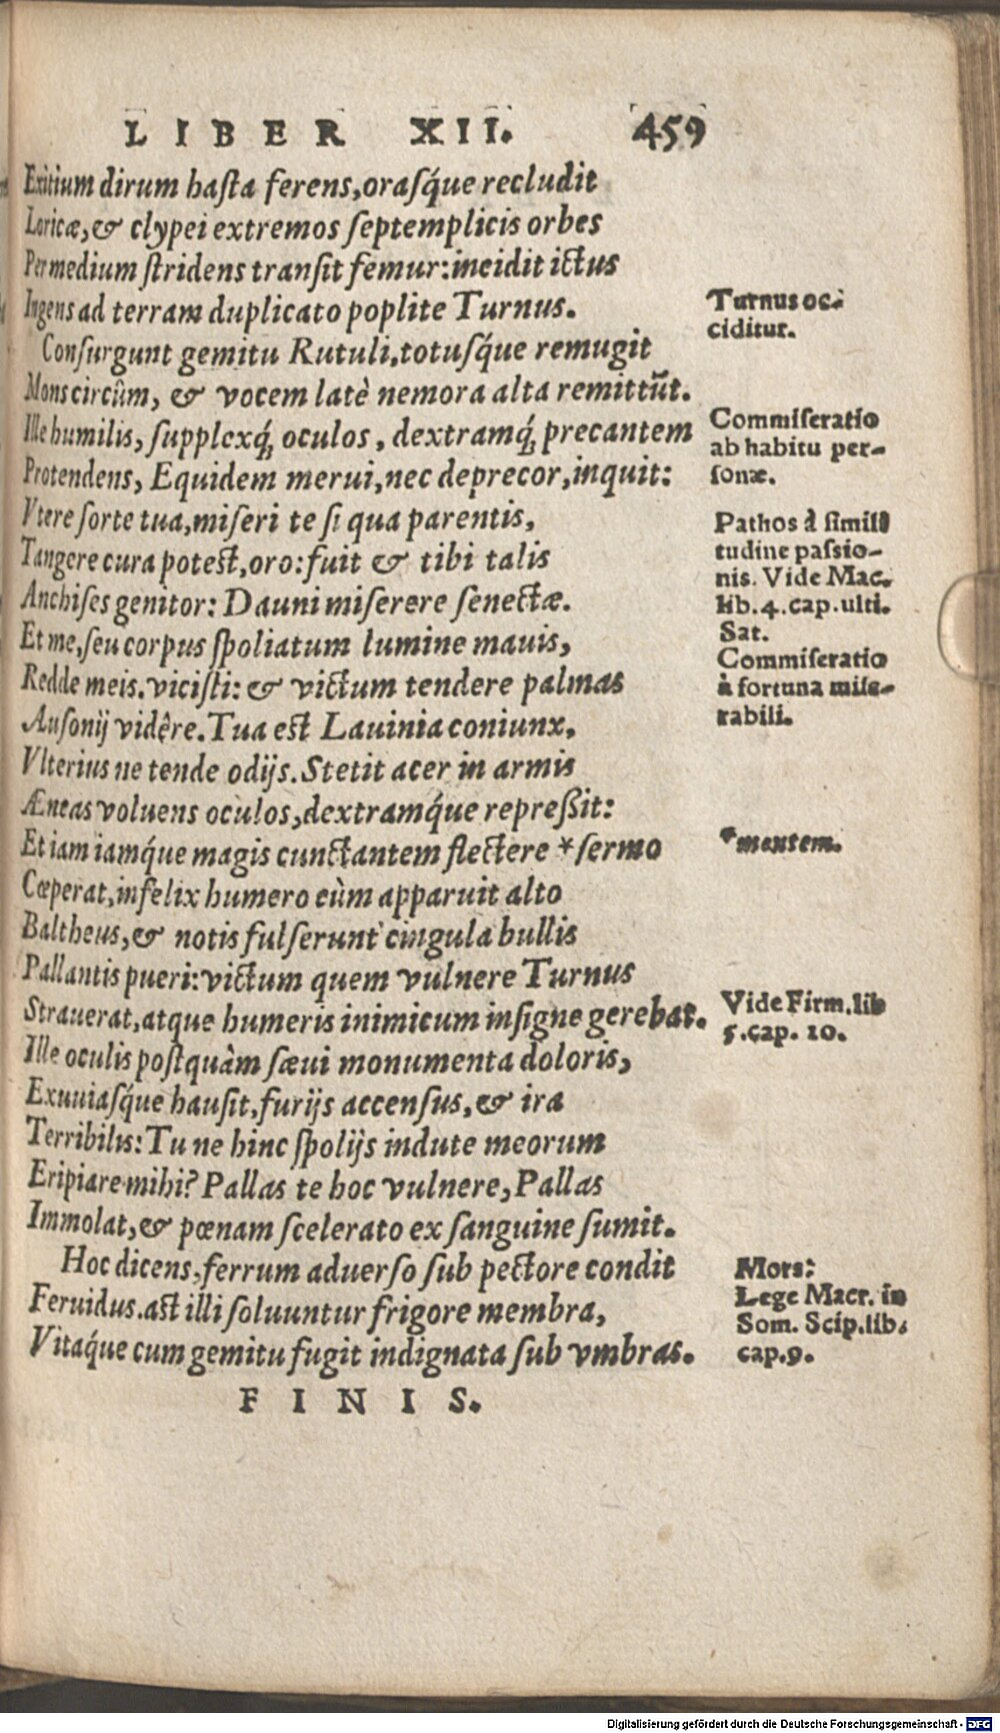 LIBER XII. 459
Exitium dirum hasta ferens, orasq́ue recludit
Loricæ, & clypei extremos septemplicis orbes
Per medium stridens transit femur: incidit ictus
Ingens ad terram duplicato poplite Turnus.
Turnus oc-
ciditur.
Consurgunt gemitu Rutuli, totusq́ue remugit
Mons circûm, & vocem latè nemora alta remittũt.
Ille humilis, supplexq́; oculos, dextramq́; precantem
Commiseratio
ab habitu per-
sonæ.
Protendens, Equidem merui, nec deprecor, inquit:
Vtere sorte tua, miseri te si qua parentis,
Pathos à simili
tudine passio-
nis. Vide Mac.
lib. 4. cap. ulti.
Sat.
Tangere cura potest, oro: fuit & tibi talis
Anchises genitor: Dauni miserere senectæ.
Et me, seu corpus spoliatum lumine mauis,
Redde meis. vicisti: & victum tendere palmas
Commiseratio
à fortuna mise-
rabili.
Ausonij vidêre. Tua est Lauinia coniunx,
Vlterius ne tende odijs. Stetit acer in armis
Æneas voluens oculos, dextramq́ue repressit:
Et iam iamq́ue magis cunctantem flectere * sermo
* mentem.
Cœperat, infelix humero cùm apparuit alto
Baltheus, & notis fulserunt cingula bullis
Pallantis pueri: victum quem vulnere Turnus
Strauerat, atque humeris inimicum insigne gerebat.
Vide Firm. lib
5. cap. 10.
Ille oculis postquàm sæui monumenta doloris,
Exuuiasq́ue hausit, furijs accensus, & ira
Terribilis: Tu ne hinc spolijs indute meorum
Eripiare mihi? Pallas te hoc vulnere, Pallas
Immolat, & pœnam scelerato ex sanguine sumit.
Hoc dicens, ferrum aduerso sub pectore condit
Feruidus. ast illi soluuntur frigore membra,
Vitaq́ue cum gemitu fugit indignata sub vmbras.
Mors:
Lege Macr. in
Som. Scip. lib.
cap. 9.
FINIS.
Digitalisierung gefördert durch die Deutsche Forschungsgemeinschaft - DFG